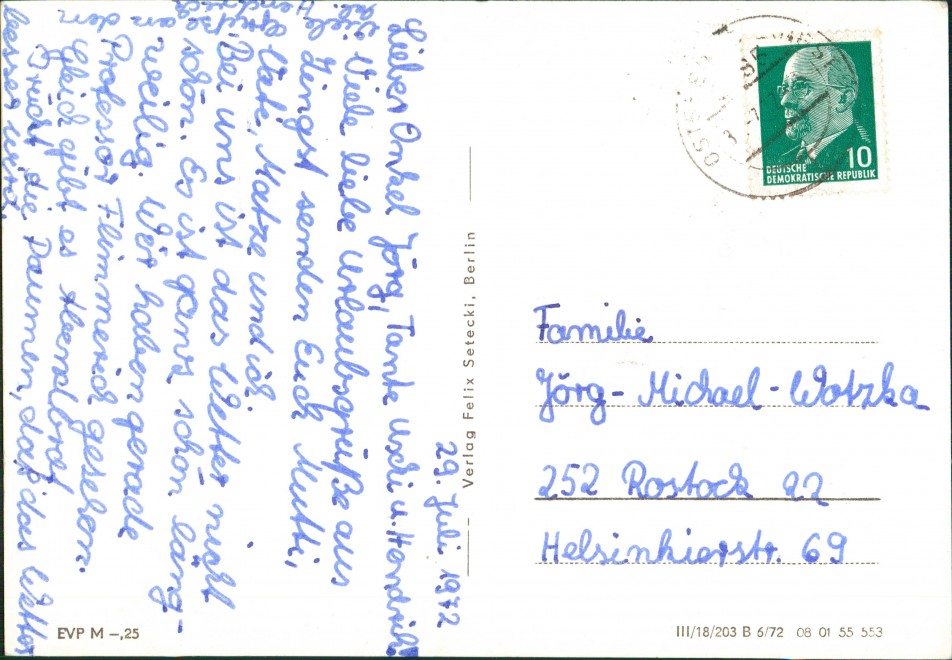 29. Juli 1972
Lieber Onkel Jörg, Tante Uschi u. Hendrik!
Viele liebe Urlaubsgrüße aus
Zingst senden Euch Mutti,
Vate, Matze und ich.
Bei uns ist das Wetter nicht
schön. Es ist ganz schön lang-
weilig. Wir haben gerade
Professor Flimmerich gesehen.
Gleich gibt es Abendbrot.
Drückt die Daumen, daß das Wetter
besser wird.
an den
Verlag Felix Setecki, Berlin
EVP M –,25
10
DEUTSCHE
DEMOKRATISCHE REPUBLIK
Familie
Jörg-Michael-Wotzka
252 Rostock 22
Helsinkierstr. 69
III/18/203 B 6/72 08 01 55 553